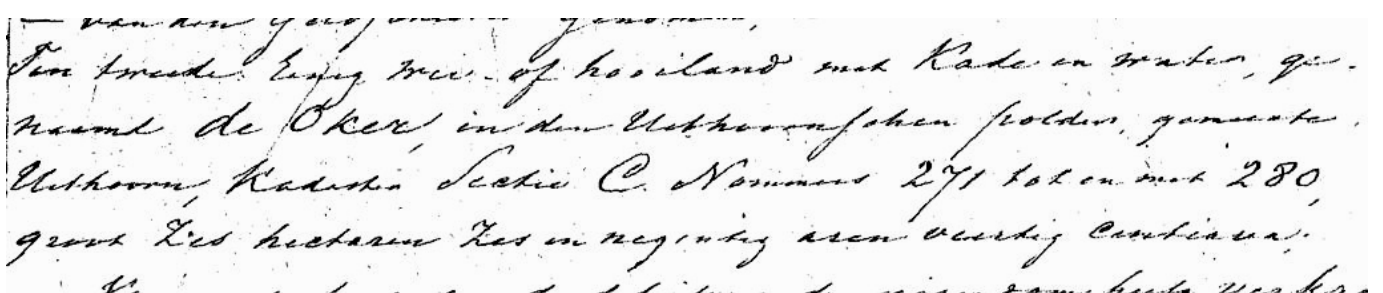 van den genomen,
Ten tweede. Eenig wei- of hooiland met Kade en water, ge-
naamd de Oker, in den Uithoornschen polder, gemeente
Uithoorn, Kadaster Sectie C. Nommers 271 tot en met 280,
groot Zes hectaren Zes en negentig aren veertig Centiaren.